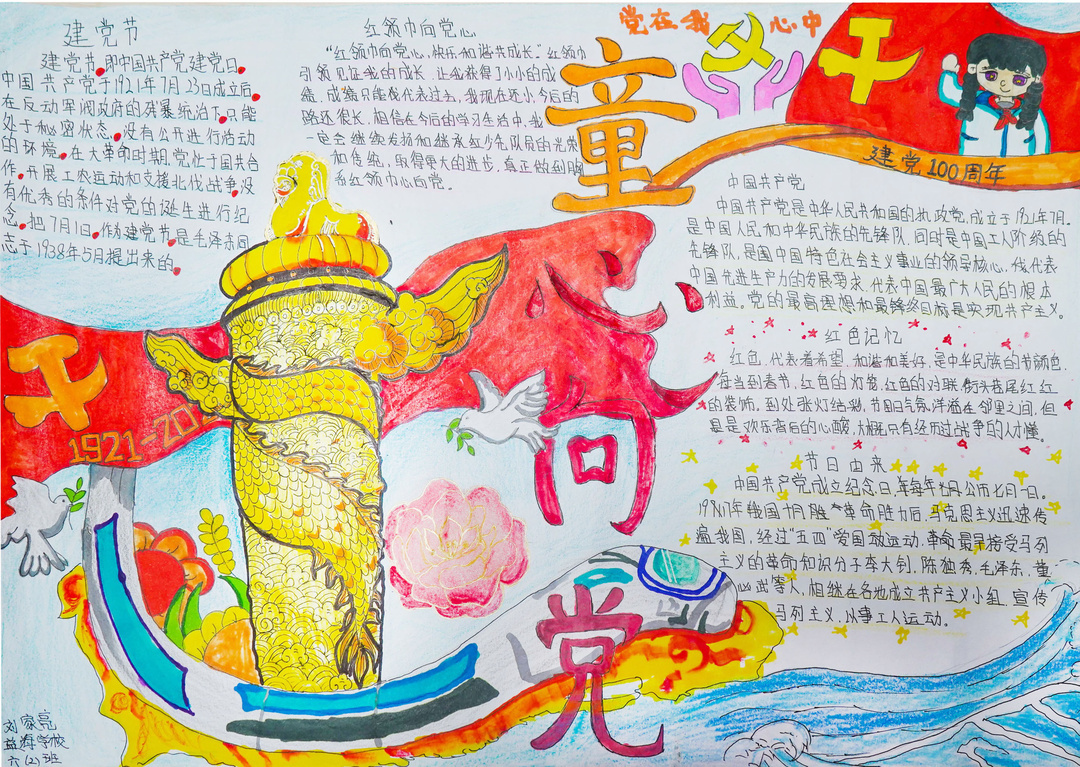 建党节
建党节,即中国共产党建党日。
中国共产党于1921年7月23日成立后。
在反动军阀政府的残暴统治下,只能
处于秘密状态。没有公开进行活动
的环境。在大革命时期,党处于国共合
作。开展工农运动和支援北伐战争。没
有优秀的条件对党的诞生进行纪
念。把7月1日。作为建党节。是毛泽东同
志于1938年5月提出来的。
红领巾向党心
"红领巾向党心,快乐和谐共成长。"红领巾
引领见证我的成长,让我获得了小小的成
绩,成绩只能代表过去,我现在还小,今后的
路还很长,相信在今后的学习生活中,我
一定会继续发扬和继承红少先队员的光荣
和传统,取得更大的进步,真正做到胸
系红领巾心向党。
童
心
向
党
党在我心中
建党100周年
中国共产党
中国共产党是中华人民共和国的执政党,成立于1921年7月。
是中国人民和中华民族的先锋队,同时是中国工人阶级的
先锋队,是国中国特色社会主义事业的领导核心,代表
中国先进生产力的发展要求,代表中国最广大人民的根本
利益。党的最高理想和最终目标是实现共产主义。
红色记忆
红色,代表着希望,和谐和美好,是中华民族的节颜色,
每当到春节,红色的灯笼,红色的对联,街头巷尾红红
的装饰,到处张灯结彩,节日气氛洋溢在邻里之间,但
是是欢乐背后的心酸,大概只有经历过战争的人才懂。
节日由来
中国共产党成立纪念日,年每年七月公布七月一日。
我国十月胜革命胜力后,马克思主义迅速传
遍我国,经过"五四"爱国运动,革命最早接受马列
主义的革命和知识分子李大钊,陈独秀,毛泽东,董
必武等人,相继在各地成立共产主义小组,宣传
马列主义,从事工人运动。
1921-20
刘家亮
益海学校
六(2)班